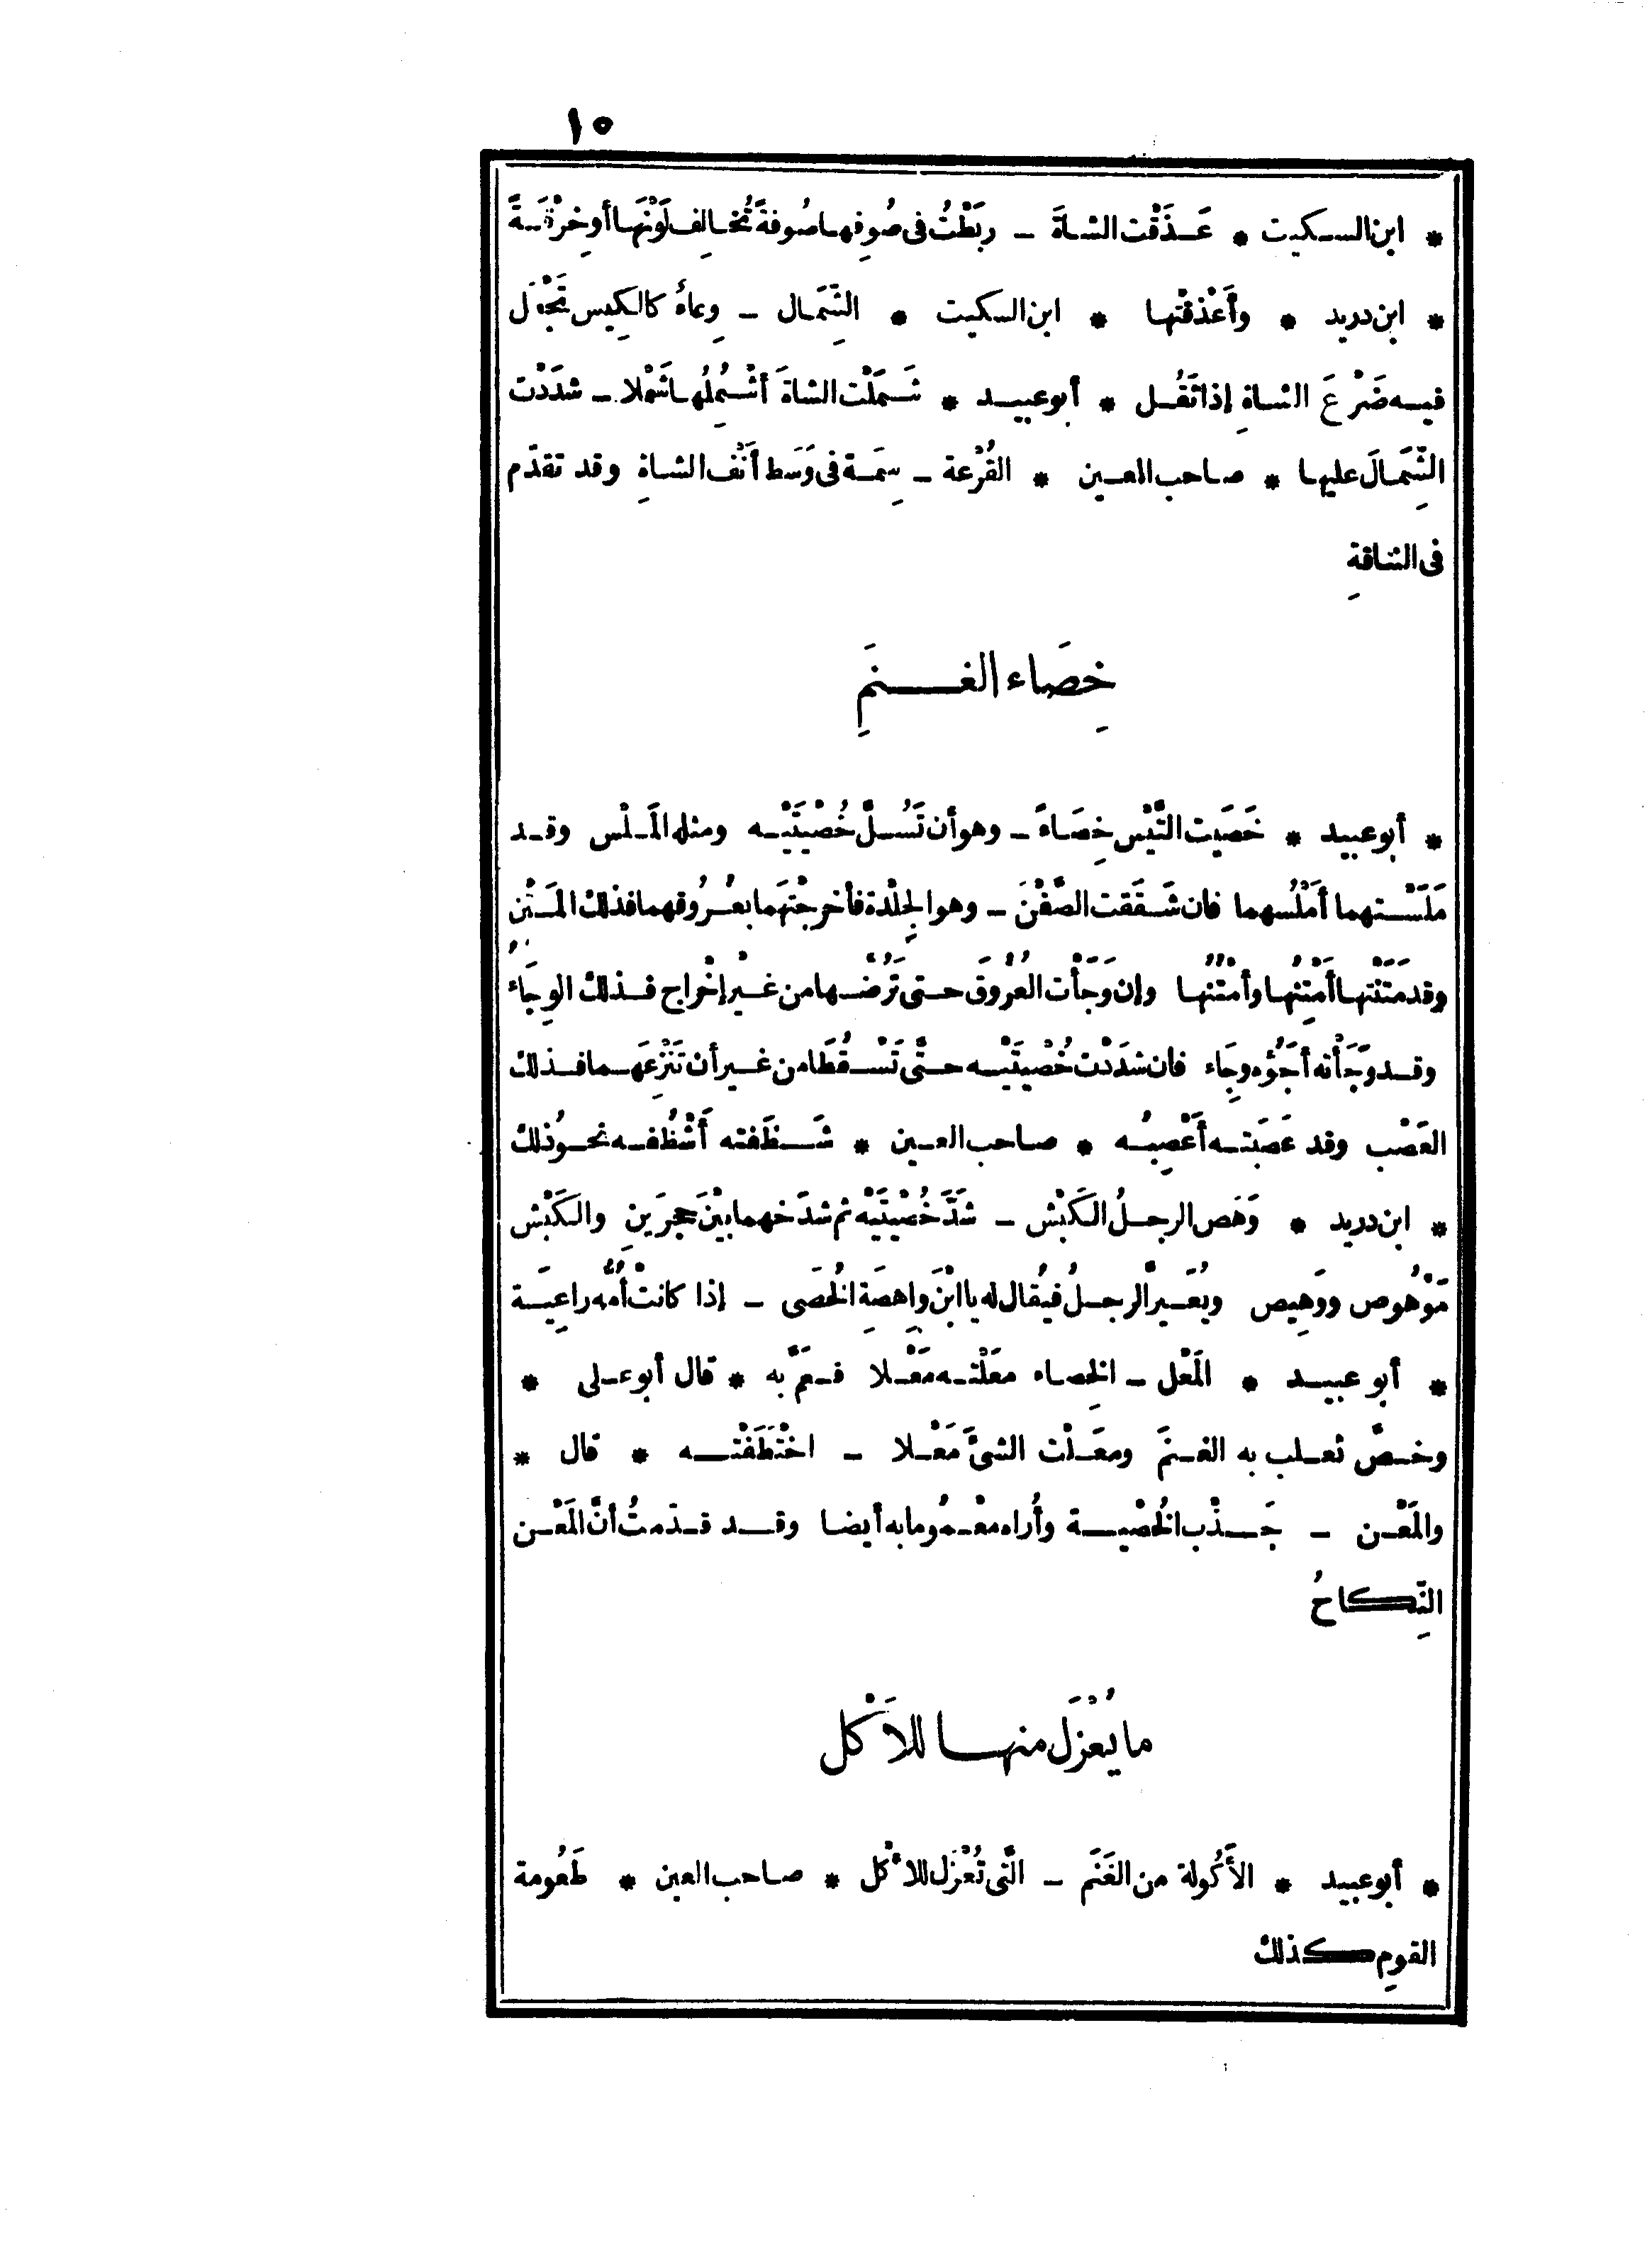 ١٥
* ابن السكيت * عَذَقْت الشاةَ – ربَطْتُ فى صُوفِها صُوفةً تُخالِف لَوْنَها أو خِرْقَةً
* ابن دريد * وأَعْذقْتها * ابن السكيت * الشِّمَال – وِعاءُ كالكِيس تَجْعَل
فيه ضَرْعَ الشاةِ إذا ثَقُل * أبو عبيد * شَمَلْت الشاةَ أشْمُلُها شَمْلا – شدَدْت
الشِّمَالَ عليها * صاحب العين * القُرْعة – سِمَة فى وَسَط أنْف الشاةِ وقد تقدّم
فى الناقةِ
خِصَاء الغَنَمِ
* أبو عبيد * خَصَيت التَّيْس خِصَاءً – وهو أن تَسُلَّ خُصْيَتَيْه ومنله المَلْس وقد
مَلَسْتهما أَمْلُسهما فان شَقَقت الصَّفَنَ – وهو الجِلْدة فأخرجْتَهما بعُرُوقهما فذلك المَتْن
وقد مَتَنْتها أمْتِنُها وأمْتُنها وإن وَجَأْت العُرُوقَ حتى تَرُضَّها من غيْر إخْراج فذلك الوِجَاءُ
وقد وَجَأْته أجَؤُه وِجَاء فان شدَدْت خُصْيتَيْه حتَّى تَسْقُطَا من غير أن تَنْزِعَهما فذلك
العَصْب وقد عَصَبْته أَعْصِبُه * صاحب العين * شَظَفته أَشْظُفه نحوُ ذلك
* ابن دريد * وَهَص الرجلُ الكَبْش – شَدَّ خُصْيَتَيْه ثم شدَخهما بيْنَ حجَرَينِ والكَبْش
مَوْهُوص ووَهِيص ويُعَيرَّ الرجلُ فيُقال له يا ابْنَ واهِصَةِ الخُصَى – إذا كانتْ أُمُّه راعِيَة
* أبو عبيد * المَعْل – الخِصاء معَلْته مَعْلا فعَمَّ به * قال أبو على *
وخصَّ ثعلب به الغنَمَ ومعَلْت الشئَ مَعْلا – اخْتطَفْته * قال *
والمَعْن – جَذْب الخُصْية وأُراه معْمُوما به أيضا وقد قدّمتُ أنَّ المَعْن
النِّكاحُ
ما يُعْزَل منها للأَكْل
* أبو عبيد * الأَكُولة من الغَنَم – الَّتى تُعْزَل للأكْل * صاحب العين * طَعُومة
القومِ كذلك